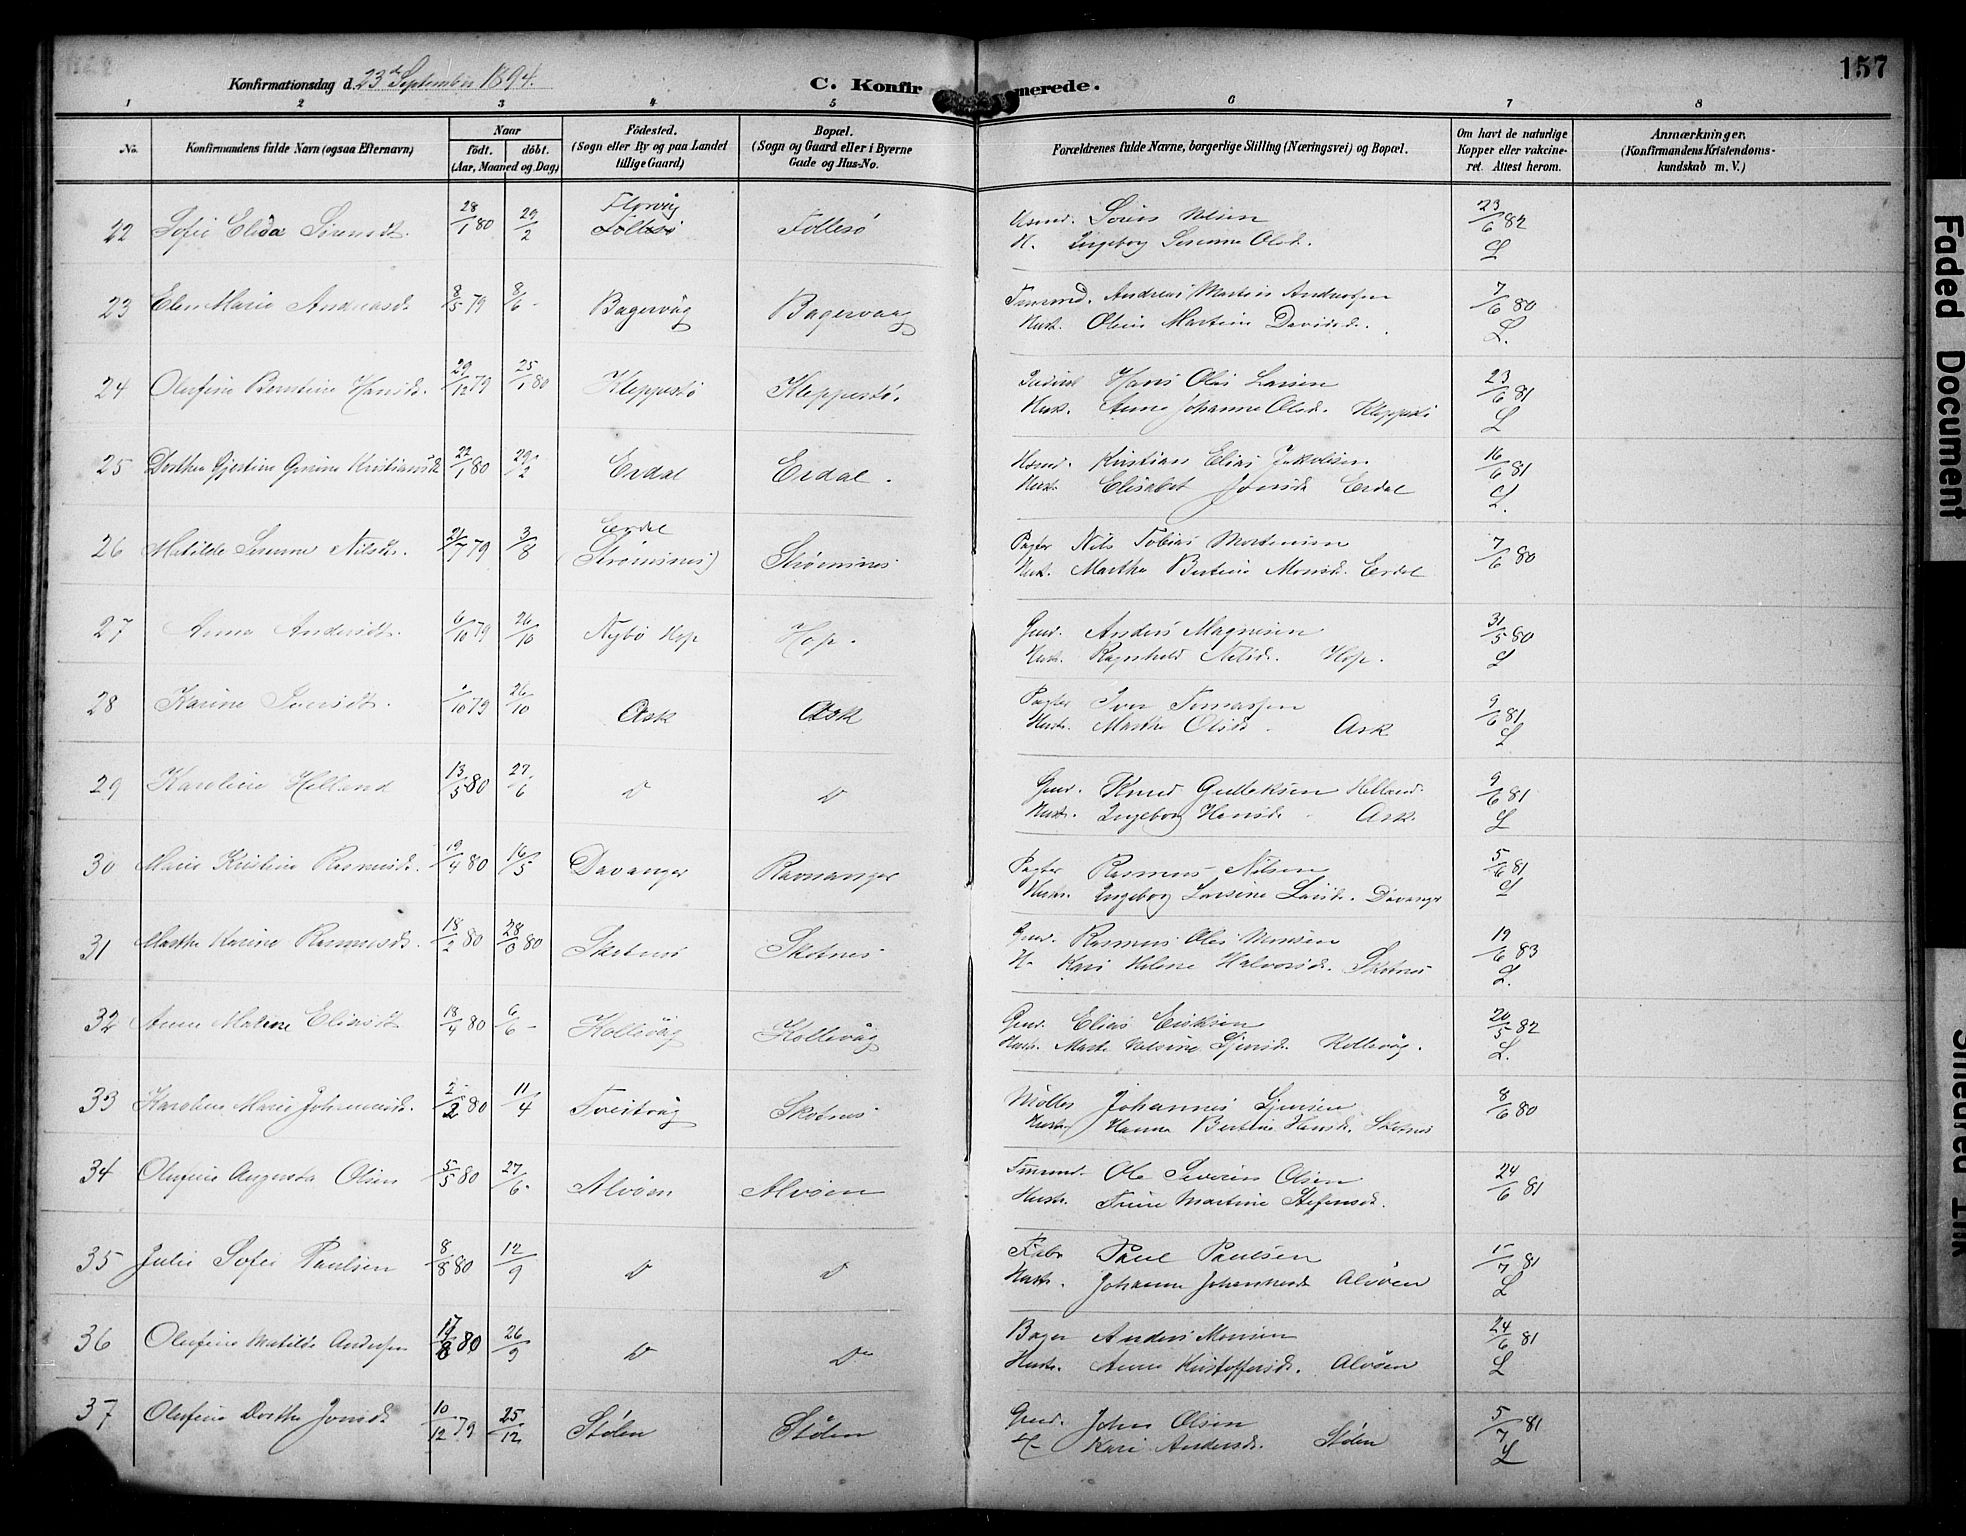 157
Konfirmationsdag d. 23d September 1894.
C. Konfir merede.
1 2 3 4 5 6 7 8
No. Konfirmandens fulde Navn (ogsaa Efternavn) Naar født. døbt. (Aar, Maaned og Dag) Fødested. (Sogn eller By og paa Landet tillige Gaard) Bopæl. (Sogn og Gaard eller i Byerne Gade og Hus-No. Forældrenes fulde Navne, borgerlige Stilling (Næringsvei) og Bopæl. Om havt de naturlige Kopper eller vakcineret. Attest herom. Anmærkninger, (Konfirmandens Kristendomskundskab m. V.)
22 Sofie Elida Sørensdt. 28/1 80 29/2 Florvåg Follesø Follesø Sören Nelsen 23/6 82
H. Ingeborg Serine Olsd. L
23 Elen Marie Andreasd. 8/5 79 8/6 - Bagervåg Bagervaag Andreas Martin Andersen 7/6 80
Hust. Oline Martine Davidsd. L.
24 Olufine Berntine Hansd. 29/12 79 25/1 80 Kleppestø Kleppestø. Hans Olai Larsen 23/6 81
Hust. Anna Johanne Olsd. Kleppestø L
25 Dorthea Gjertine Kristiansd. 22/1 80 29/2 Erdal Erdal. Kristian Elias Jakobsen 16/6 81
Hust. Elisabet Jonsd. Erdal L.
26 Matilde Serine Nilsdt. 21/7 79 3/8 Erdal (Strømsnes) Strømsnes Pagter Nils Tobias Mortensen 7/6 80
Hust. Martha Bertine Monsd. Erdal
27 Anna Andersdt. 6/10 79 26/10 Nybø Hop Hop. Gmd. Anders Magnesen 31/5 80
Hust. Ragnhild Nilsd. Hop. L
28 Karine Iversdt. /10 79 26/10 Ask Ask Pagter Iver Tomassen 9/6 81
Hust. Marthe Olsd. Ask L
29 Karoline Helland 13/5 80 27/6 D D Gmd. Knud Gulleksen Helland. 9/6 81
Hust. Ingeborg Hansd. Ask. L
30 Marie Kristine Rasmusd. 19/4 80 16/5 Davanger Ravnanger Pagter Rasmus Nilsen 5/6 81
Hust. Ingeborg Larsine Larsd. Davanger L
31 Marthe Karine Rasmusd. 18/2 80 28/3 80 Skotnes Skotnes Gmd. Rasmus Olai Monsen 19/6 83
H. Kari Helene Halvorsd. Skotnes L.
32 Anna Malene Eliasdt 18/4 80 6/6 - Kollevåg Kollevåg Gmd. Elias Eriksen 20/5 82
Hust. Marte Nelsine Kollevåg. L.
33 Karoline Marie Johannesd. 2/2 80 11/4 Tveitvåg Skotnes Møller Johannes 8/6 80
Hust. Hanna Bertine Hansd. Skotnes
34 Olufine Augusta Olsen 5/5 80 27/6. Alvøen Alvøen Tmrmd. Ole Severin Olsen 24/6 81
Hust. Trine Martine Stefensd.
35 Julie Sofie Paulsen 8/8 80 12/9 D D Paul Paulsen /7 81
Hust. Johanna Johannesd Alvøen L
36 Olufine Matilde Andersen 17/8 80 26/9 D Do Bager Anders Monsen 24/6 81
Hust. Anna Kristoffersd. Alvøen L
37 Olufine Dorthe Jonsdt 10/12 79 25/12 Stølen Stølen Gmd. John Olsen 5/7 81
H- Kari Andersd. Stølen L
Faded Document
Smeared Ink